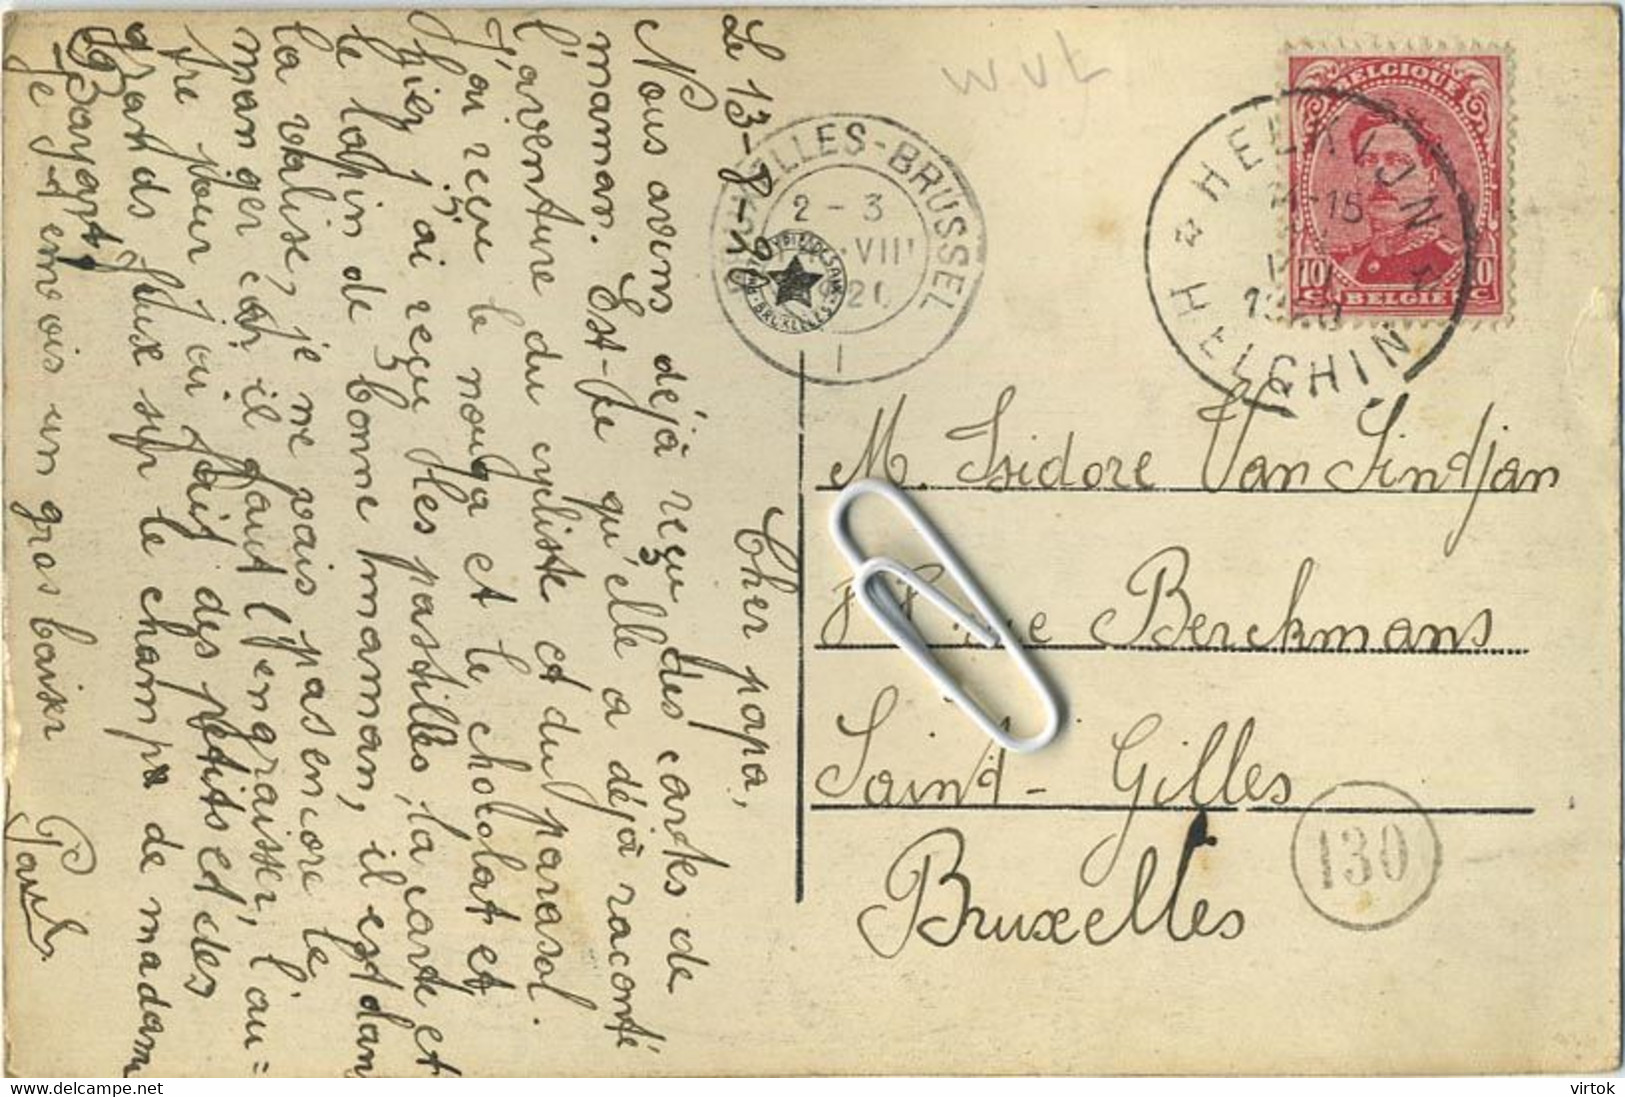 Le 13-8-20
Cher papa,
Nous avons déjà reçu des cartes de
maman. Est-ce qu'elle a déjà raconté
l'aventure du cycliste et du parasol.
J'ai reçu le nouga et le chocolat et
hier j'ai reçu les pastilles, la carte et
le lapin de bonne maman, il est dans
la valise, je ne vais pas encore le
manger car il faut l'engraisser, l'au=
tre jour j'ai fait des petits et des
grands feux sur le champ de madame
Bayart.
Je t'envois un gros baiser
Paul.
WVL
BRUXELLES-BRUSSEL
2-3
VIII
1
BRUXELLES
BELGIQUE
10 c
10 c
BELGIË
HELKIJN
HELCHIN
M. Isidore Van Sintjan
rue Berckmans
Saint-Gilles
Bruxelles
130
virtok